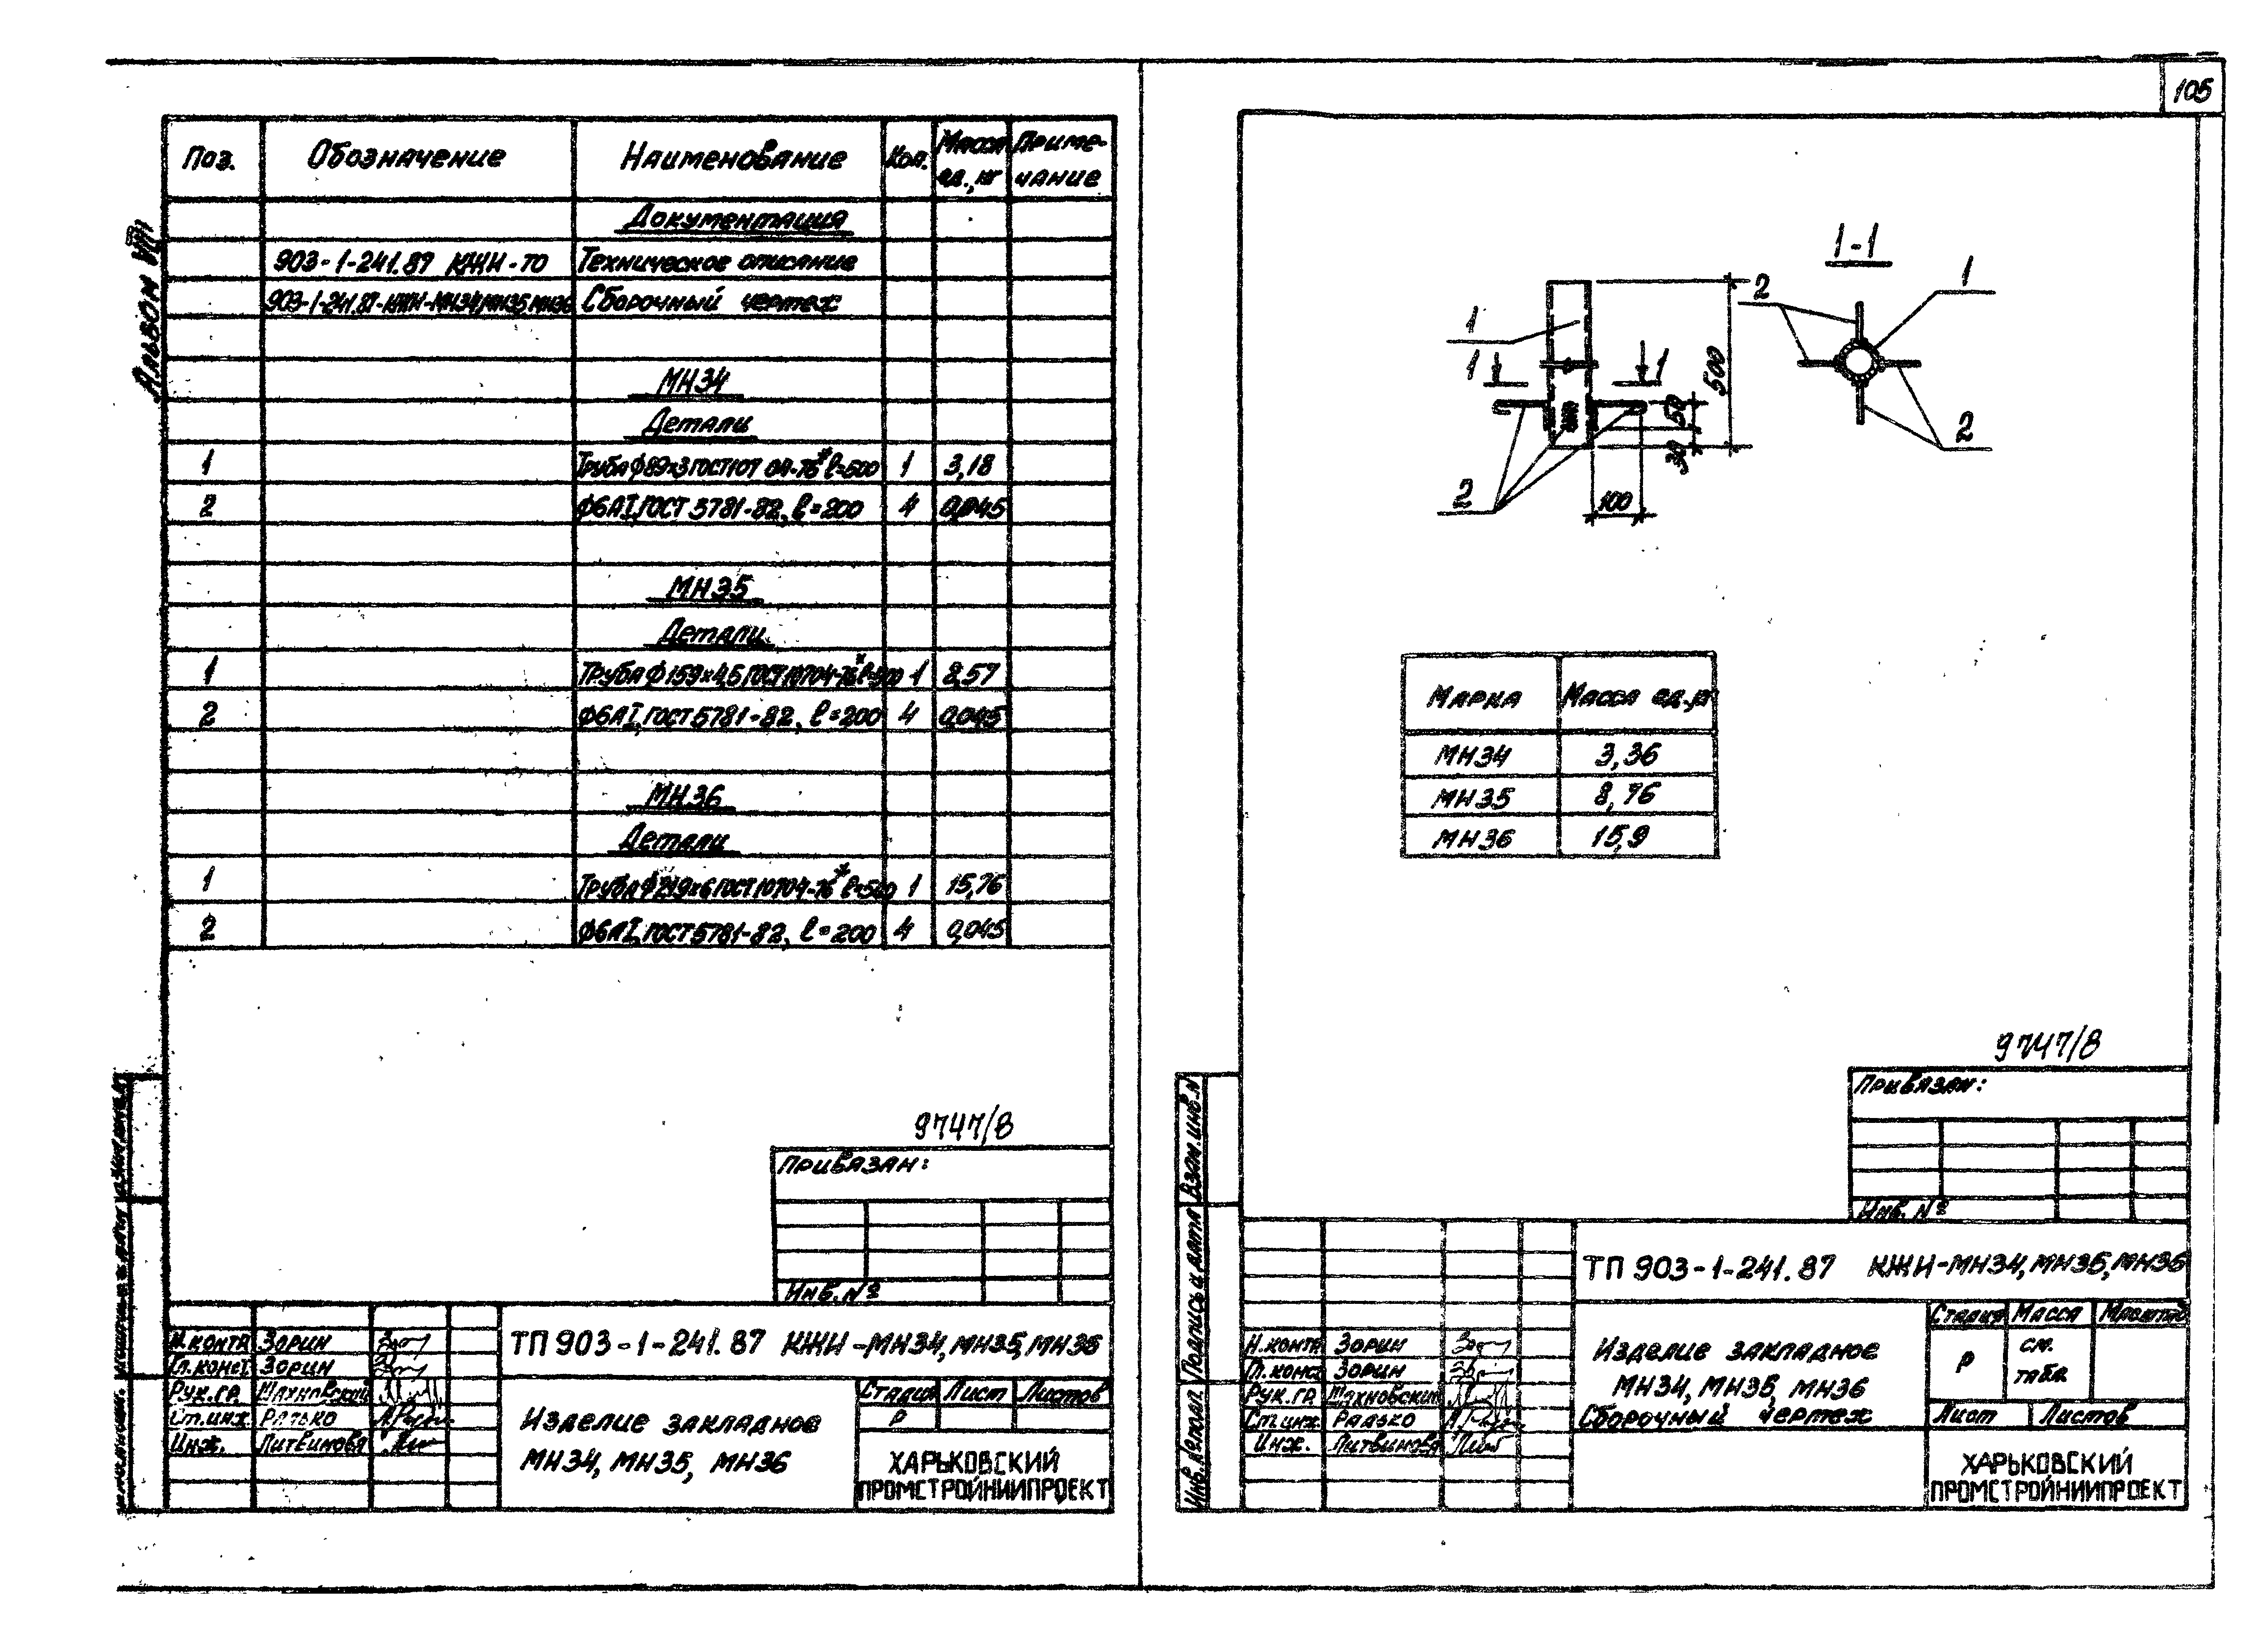 105
Альбом VIII
Поз. Обозначение Наименование Кол. Масса ед., кг Приме-чание
Документация
903-1-241.87 КЖИ-ТО Техническое описание
903-1-241.87-КЖИ-МН34,МН35,МН36 Сборочный чертеж
МН34
Детали
1 Труба ф89×3 ГОСТ107 04-76* ℓ=500 1 3,18
2 ф6АI, ГОСТ 5781-82, ℓ=200 4 0,045
МН35
Детали
1 Труба ф159×4,5 ГОСТ10704-76* ℓ=500 1 8,57
2 ф6АI, ГОСТ 5781-82, ℓ=200 4 0,045
МН36
Детали
1 Труба ф219×6 ГОСТ10704-76* ℓ=500 1 15,76
2 ф6АI, ГОСТ 5781-82, ℓ=200 4 0,045
9747/8
Привязан:
Инв. №
Н.контр Зорин
Гл.конст. Зорин
Рук.гр. Шахновский
Ст.инж. Радько
Инж. Литвинова
ТП 903-1-241.87 КЖИ-МН34, МН35, МН36
Изделие закладное
МН34, МН35, МН36
Стадия Лист Листов
Р
ХАРЬКОВСКИЙ
ПРОМСТРОЙНИИПРОЕКТ
1-1
1
2
1
1 1
500
50
30
2
100
2
Марка Масса ед.кг
МН34 3,36
МН35 8,76
МН36 15,9
9747/8
Привязан:
Инв. №
Взам.инв.№
Подпись и дата
Инв.№ подл.
Н.контр Зорин
Гл.конст Зорин
Рук.гр Шахновский
Ст.инж. Радько
Инж. Литвинова
ТП 903-1-241.87 КЖИ-МН34, МН35, МН36
Изделие закладное
МН34, МН35, МН36
Сборочный чертеж
Стадия Масса Масштаб
Р см. табл.
Лист Листов
ХАРЬКОВСКИЙ
ПРОМСТРОЙНИИПРОЕКТ